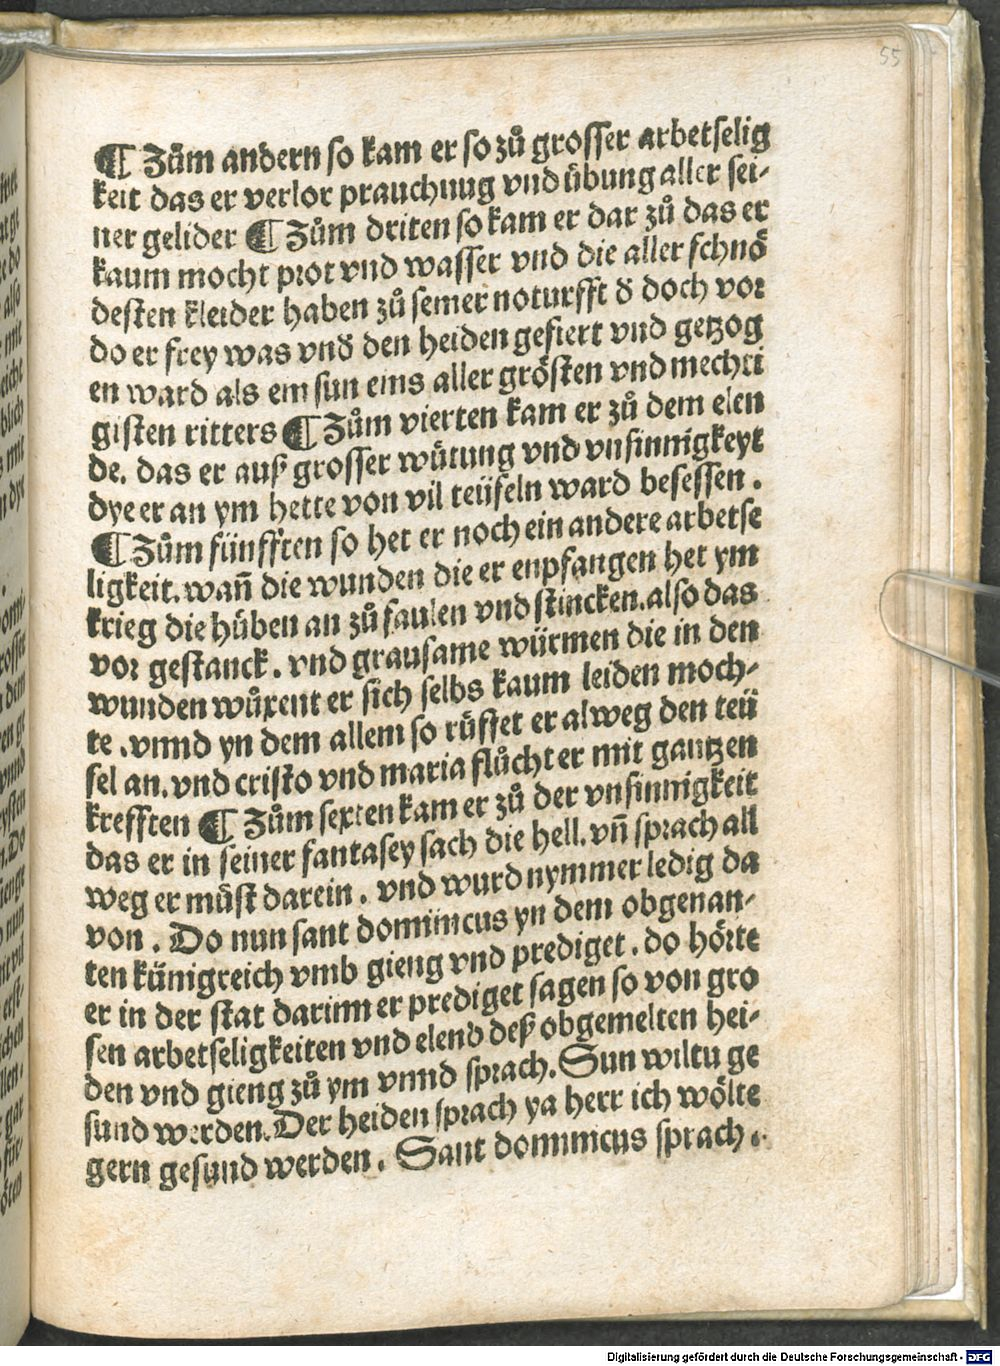 55
¶ Zům andern so kam er so zů grosser arbetselig
keit das er verlor prauchnug vnd übung aller sei-
ner gelider ¶ Zům driten so kam er dar zů das er
kaum mocht prot vnd wasser vnd die aller schnö
desten kleider haben zů seiner noturfft d doch vor
do er frey was vnd den heiden gefiert vnd getzog
en ward als ein sun eins aller grösten vnd mechti
gisten ritters ¶ Zům vierten kam er zů dem elen
de. das er auß grosser wütung vnd vnsinnigkeyt
dye er an ym hette von vil teüfeln ward besessen.
¶ Zům fünfften so het er noch ein andere arbetse
ligkeit. wañ die wunden die er enpfangen het ym
krieg die hüben an zů faulen vnd stincken. also das
vor gestanck. vnd grausame würmen die in den
wunden wůxent er sich selbs kaum leiden moch-
te. vnnd yn dem allem so rüffet er alweg den teü
fel an. vnd cristo vnd maria flůcht er mit gantzen
krefften ¶ Zům sexten kam er zů der vnsinnigkeit
das er in seiner fantasey sach die hell. vñ sprach all
weg er müst darein. vnd wurd nymmer ledig da
von. Do nun sant dominicus yn dem obgenan-
ten künigreich vmb gieng vnd prediget. do hörte
er in der stat darinn er prediget sagen so von gro
sen arbetseligkeiten vnd elend deß obgemelten hei-
den vnd gieng zů ym vnnd sprach. Sun wiltu ge
sund werden. Der heiden sprach ya herr ich wölte
gern gesund werden. Sant dominicus sprach.
Digitalisierung gefördert durch die Deutsche Forschungsgemeinschaft - DFG